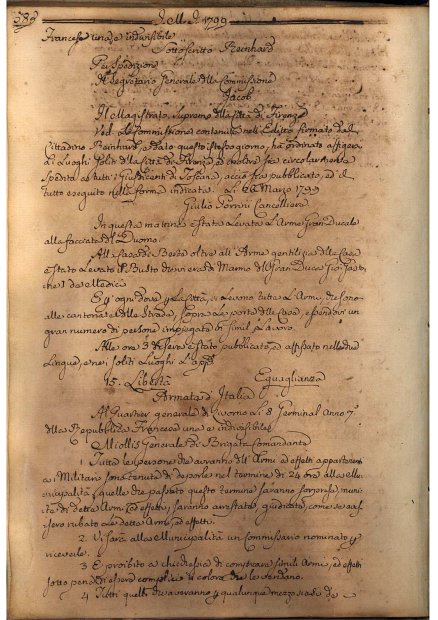 A.M.D. 1799
Francese una, e indivisibile
Sottoscritto Reinhard
Per Spedizione
Il Segretario Generale della Commissione
Jacob
Il Magistrato Supremo della Città di Firenze
Ved. Le Commissione contenute nell'Editto firmato dal
Cittadino Reinhard, e dato questo stesso giorno, ha ordinato affigersi
ai Luoghi soliti della Città di Firenze, et
Spedita a tutti i Giusdicenti di Toscana, acciò sia pubblicato, ed il
tutto eseguito nelle forme indicate. Li 26 Marzo 1799
Giulio Porrini Cancelliere
In questa mattina è stata levata l'Arme Gran Ducale
alla facciata di Duomo.
Alla Casa di Berto oltre all'Arme gentilizia della Casa
è stato levato il Busto di Marmo del Gran Duca
che I de Medici
E p ogni dove p la Città, si levano tutte le Armi, che sono
alle cantonate delle Strade, sopra le porte delle Case,
gran numero di persone impiegate di simil Lavoro.
Alle ore 3 di sera è stato pubblicato, e affissato nelle due
Lingue, e nei soliti Luoghi l'app.
15. Libertà Eguaglianza
Armata d'Italia
Al Quartier generale di Livorno li 8 Germinal Anno 7°
della Repubblica Francese una e indivisibile
Miollis Generale di Brigata Comandante
1 Tutte le persone che avranno dell'Armi ed effetti appartenenti
a i Militari sono tenute di deporle nel termine di 24 ore alla Mu-
nicipalità, quelle che passato questo termine saranno sorprese muni-
te di dette Armi, ed effetti, saranno arrestate, giudicate, come se aves-
sero rubato le dette Armi, ed effetti.
2. Vi sarà alla Municipalità un Commissario nominato p
riceverle.
3 È proibito a chicchesia di comprare simili Armi, ed effetti
sotto pena di essere complici di coloro che le vendano.
4 Tutti quelli che avevanno p qualunque mezzo